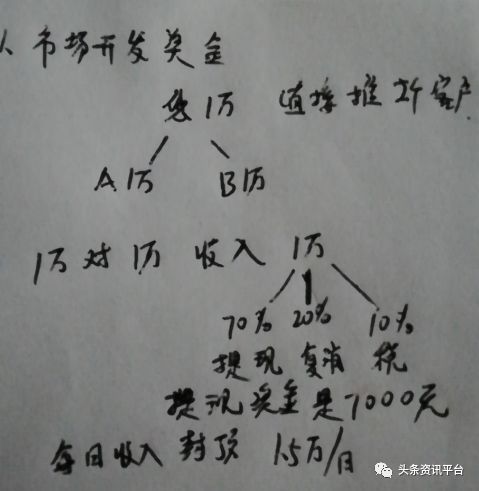 市场开发奖金
您1万 直接推2个客户
A1万 B1万
1万对1万 收入 1万
70% 20% 10%
提现 复消 税
提现奖金是7000元
每日收入 封顶 1.5万/日
头条资讯平台